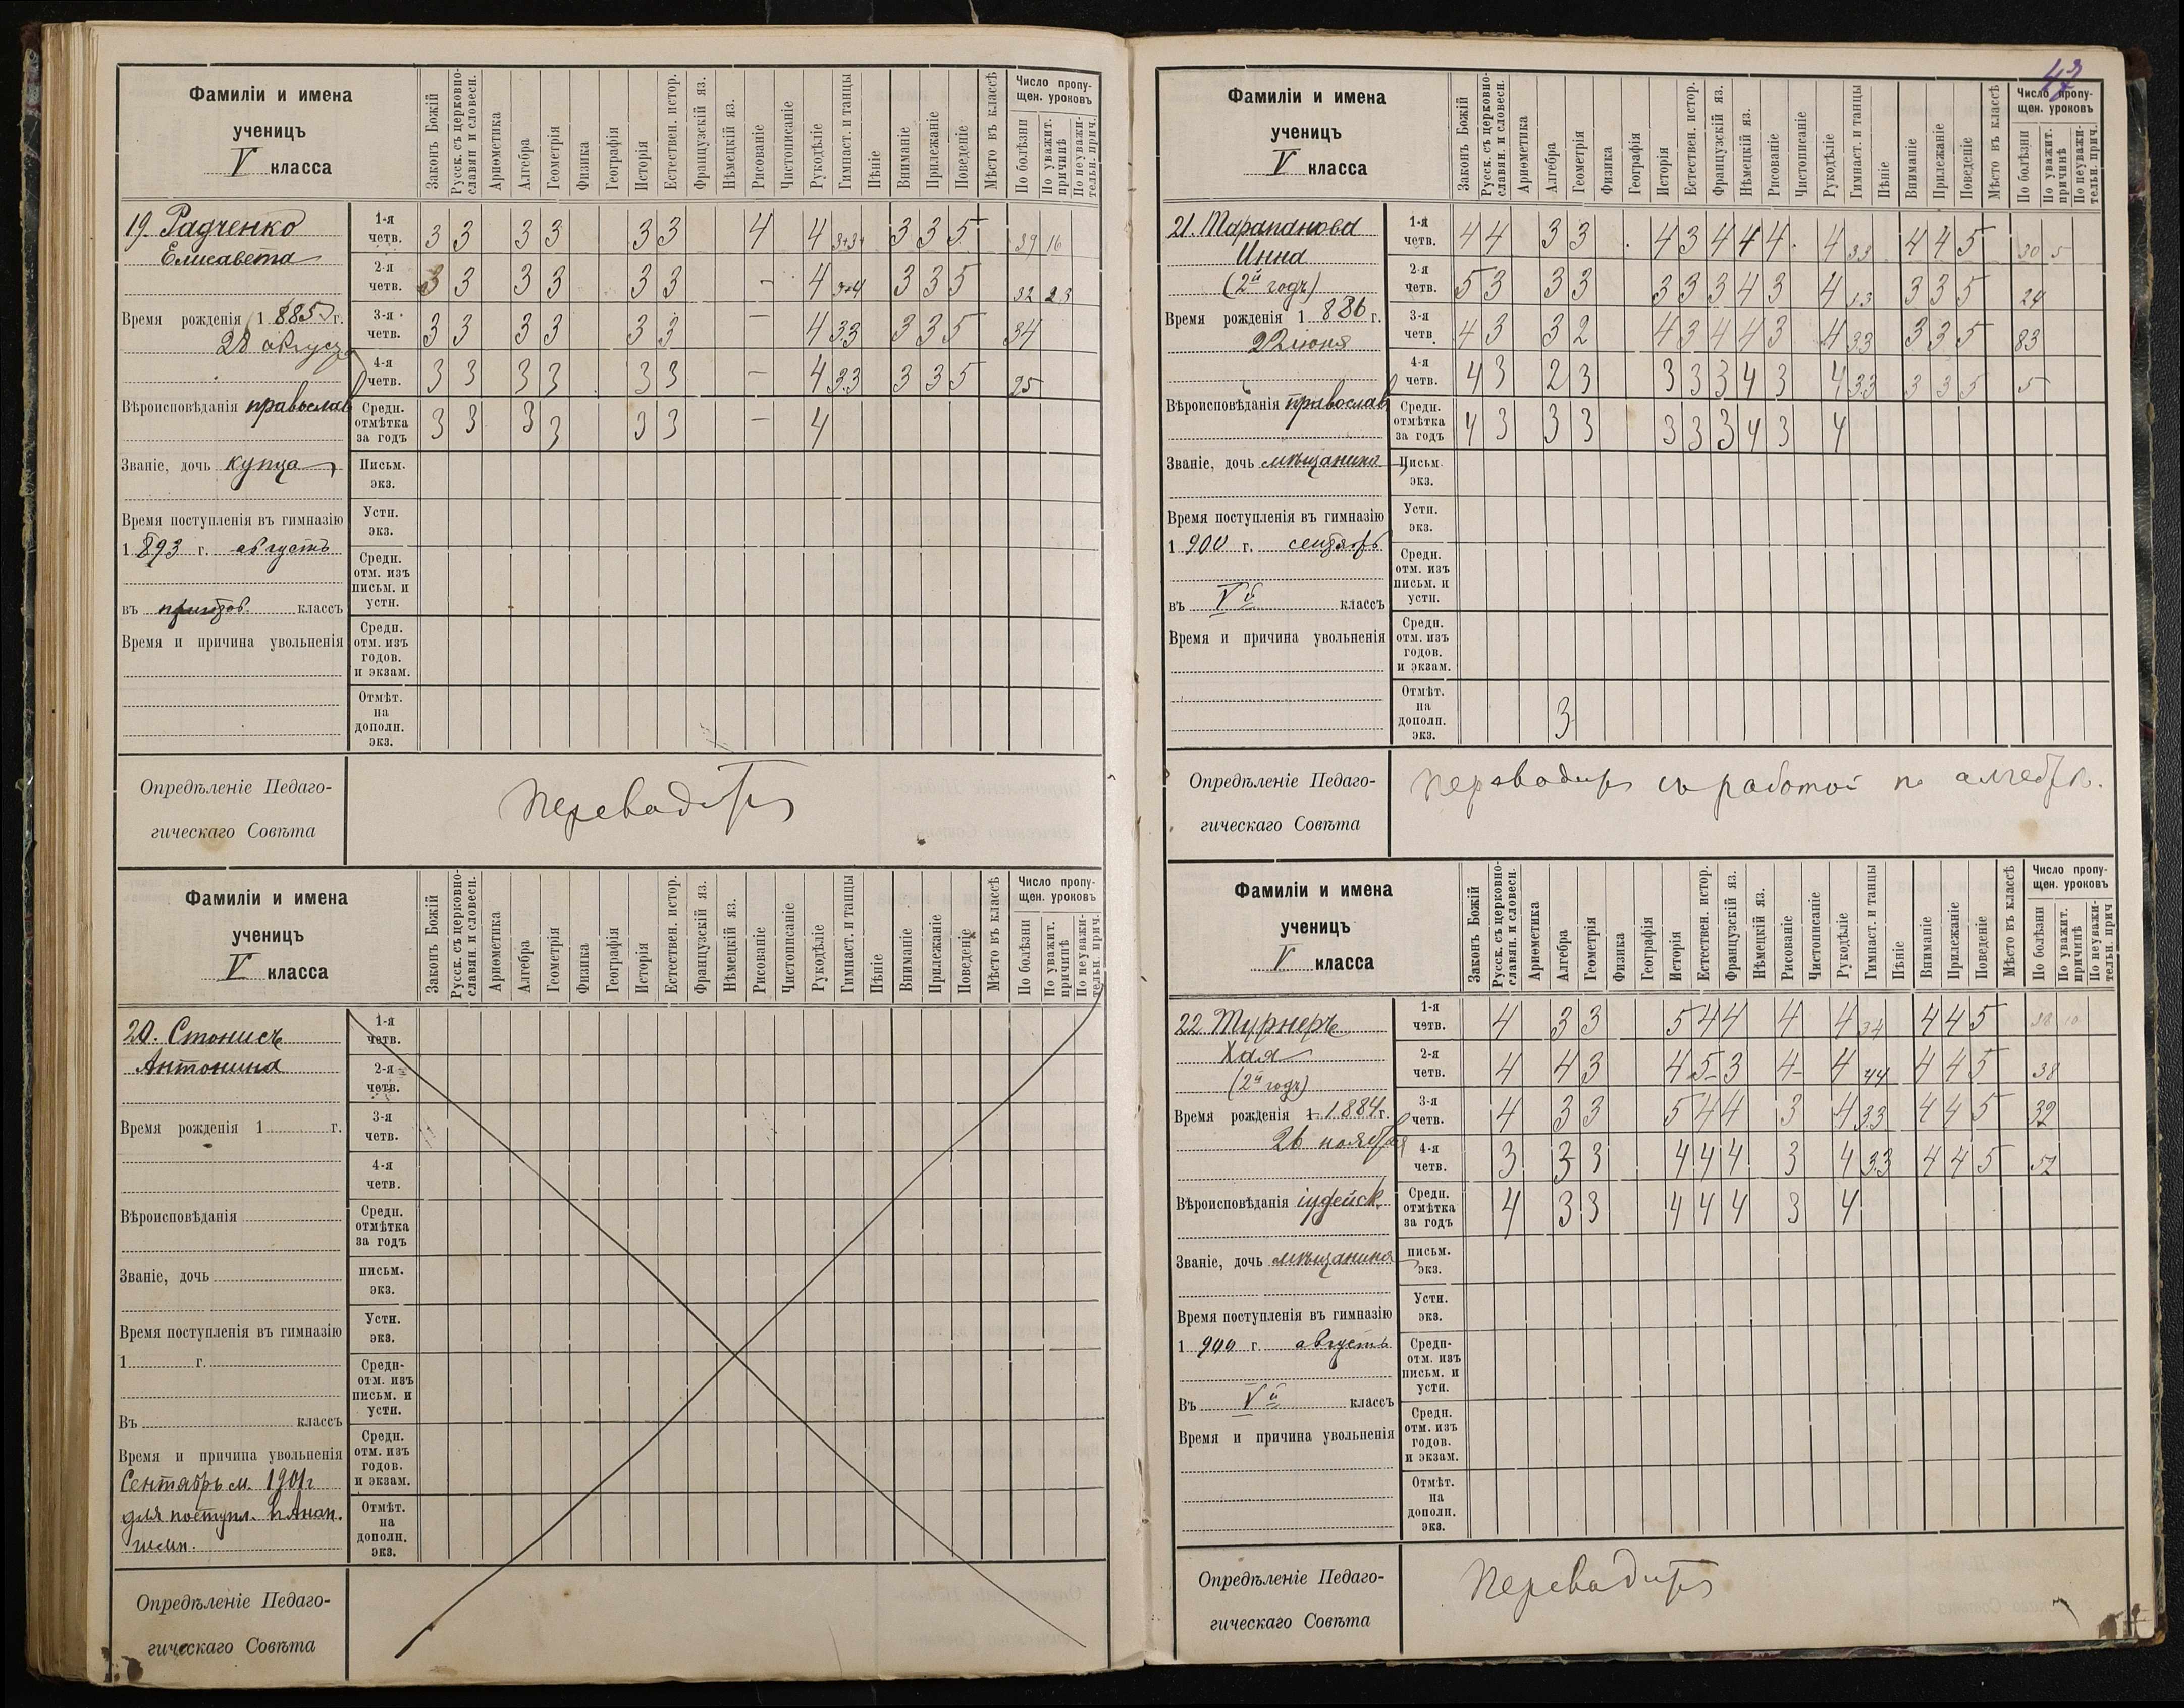 Фамиліи и имена
ученицъ
V класса
Законъ Божій
Русск. съ церковно-
славян. и словесн.
Ариѳметика
Алгебра
Геометрія
Физика
Географія
Исторія
Естествен. истор.
Французскій яз.
Нѣмецкій яз.
Рисованіе
Чистописаніе
Рукодѣліе
Гимнаст. и танцы
Пѣніе
Вниманіе
Прилежаніе
Поведеніе
Мѣсто въ классѣ
Число пропу-
щен. уроковъ
По болѣзни
По уважит.
причинѣ
По неуважи-
тельн. прич.
19. Радченко
Елисавета
Время рожденія 1885 г.
28 август
Вѣроисповѣданія православ
Званіе, дочь купца
Время поступленія въ гимназію
1893 г. августъ
въ пригот. классъ
Время и причина увольненія
1-я четв. 3 3 3 3 3 3 4 4 3 3 5 39 16
2-я четв. 3 3 3 3 3 3 - 4 3 3 5 32 23
3-я четв. 3 3 3 3 3 3 - 4 3 3 3 3 5 34
4-я четв. 3 3 3 3 3 3 - 4 3 3 3 3 5 25
Средн. отмѣтка за годъ 3 3 3 3 3 3 - 4
Письм. экз.
Устн. экз.
Средн. отм. изъ письм. и устн.
Средн. отм. изъ годов. и экзам.
Отмѣт. на дополн. экз.
Опредѣленіе Педаго-
гическаго Совѣта
Переводится
Фамиліи и имена
ученицъ
V класса
Законъ Божій
Русск. съ церковно-
славян. и словесн.
Ариѳметика
Алгебра
Геометрія
Физика
Географія
Исторія
Естествен. истор.
Французскій яз.
Нѣмецкій яз.
Рисованіе
Чистописаніе
Рукодѣліе
Гимнаст. и танцы
Пѣніе
Вниманіе
Прилежаніе
Поведеніе
Мѣсто въ классѣ
Число пропу-
щен. уроковъ
По болѣзни
По уважит.
причинѣ
По неуважи-
тельн. прич.
20. Стонисъ
Антонина
Время рожденія 1 г.
Вѣроисповѣданія
Званіе, дочь
Время поступленія въ гимназію
1 г.
Въ классъ
Время и причина увольненія
Сентябрь м. 1901 г
для поступл. в Анан.
гимн.
1-я четв.
2-я четв.
3-я четв.
4-я четв.
Средн. отмѣтка за годъ
письм. экз.
Устн. экз.
Средн- отм. изъ письм. и устн.
Средн. отм. изъ годов. и экзам.
Отмѣт. на дополн. экз.
Опредѣленіе Педаго-
гическаго Совѣта
Фамиліи и имена
ученицъ
V класса
Законъ Божій
Русск. съ церковно-
славян. и словесн.
Ариѳметика
Алгебра
Геометрія
Физика
Географія
Исторія
Естествен. истор.
Французскій яз.
Нѣмецкій яз.
Рисованіе
Чистописаніе
Рукодѣліе
Гимнаст. и танцы
Пѣніе
Вниманіе
Прилежаніе
Поведеніе
Мѣсто въ классѣ
Число пропу-
щен. уроковъ
По болѣзни
По уважит.
причинѣ
По неуважи-
тельн. прич.
21. Тарапанова
Инна
(2й годъ)
Время рожденія 1886 г.
22 июня
Вѣроисповѣданія православ
Званіе, дочь мѣщанина
Время поступленія въ гимназію
1900 г. сентябрь
въ Vй классъ
Время и причина увольненія
1-я четв. 4 4 3 3 4 3 4 4 4 4 3 3 4 4 5 30 5
2-я четв. 5 3 3 3 3 3 3 4 3 4 3 3 5 24
3-я четв. 4 3 3 2 4 3 4 4 3 4 3 3 3 3 5 83
4-я четв. 4 3 2 3 3 3 3 4 3 4 3 3 3 3 5 5
Средн. отмѣтка за годъ 4 3 3 3 3 3 3 4 3 4
Письм. экз.
Устн. экз.
Средн. отм. изъ письм. и устн.
Средн. отм. изъ годов. и экзам.
Отмѣт. на дополн. экз. 3
Опредѣленіе Педаго-
гическаго Совѣта
Переводится съ работой по алгебрѣ.
Фамиліи и имена
ученицъ
V класса
Законъ Божій
Русск. съ церковно-
славян. и словесн.
Ариѳметика
Алгебра
Геометрія
Физика
Географія
Исторія
Естествен. истор.
Французскій яз.
Нѣмецкій яз.
Рисованіе
Чистописаніе
Рукодѣліе
Гимнаст. и танцы
Пѣніе
Вниманіе
Прилежаніе
Поведеніе
Мѣсто въ классѣ
Число пропу-
щен. уроковъ
По болѣзни
По уважит.
причинѣ
По неуважи-
тельн. прич
22 Турнеръ
Хая
(2й годъ)
Время рожденія 1884 г.
26 ноября
Вѣроисповѣданія іудейск.
Званіе, дочь мѣщанина
Время поступленія въ гимназію
1900 г. августъ
Въ Vй классъ
Время и причина увольненія
1-я четв. 4 3 3 5 4 4 4 4 3 4 4 4 5 38 10
2-я четв. 4 4 3 4 5 3 4 4 4 4 4 4 5 38
3-я четв. 4 3 3 5 4 4 3 4 3 3 4 4 5 32
4-я четв. 3 3 3 4 4 4 3 4 3 3 4 4 5 52
Средн. отмѣтка за годъ 4 3 3 4 4 4 3 4
письм. экз.
Устн. экз.
Средн- отм. изъ письм. и устн.
Средн. отм. изъ годов. и экзам.
Отмѣт. на дополн. экз.
Опредѣленіе Педаго-
гическаго Совѣта
Переводится